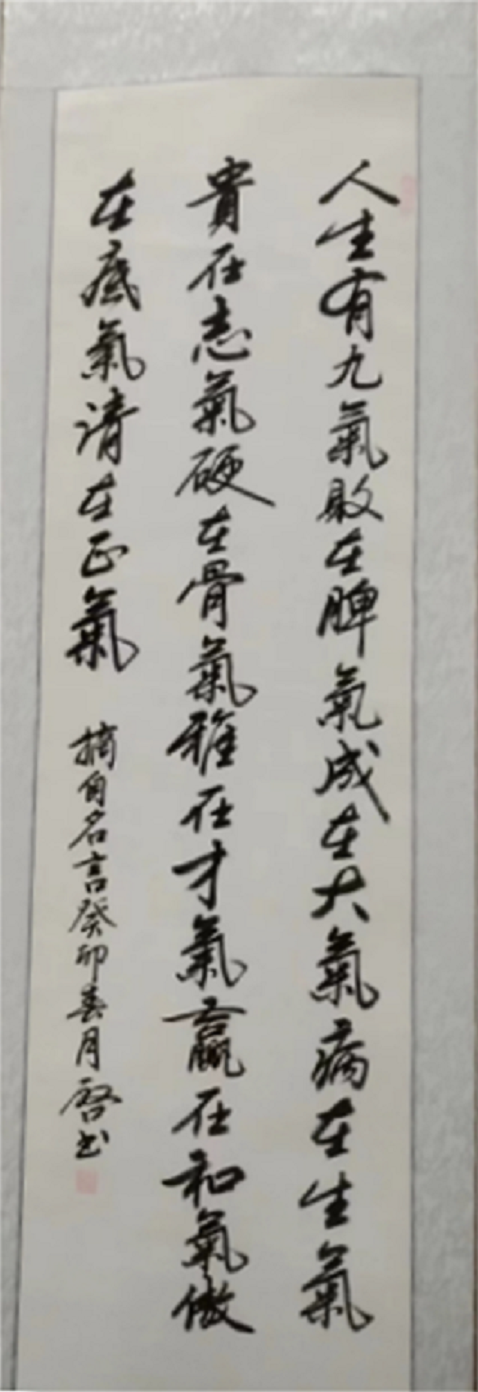 人生有九氣敗在脾氣成在大氣病在生氣
貴在志氣硬在骨氣雅在才氣贏在和氣傲
在底氣清在正氣
摘自名言癸卯春月啓书